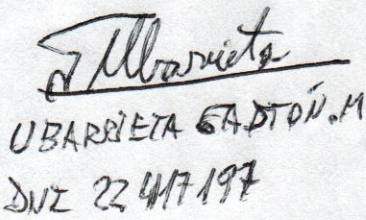 Ubarrieta
UBARRIETA GASTÓN.M
DNI 22417197